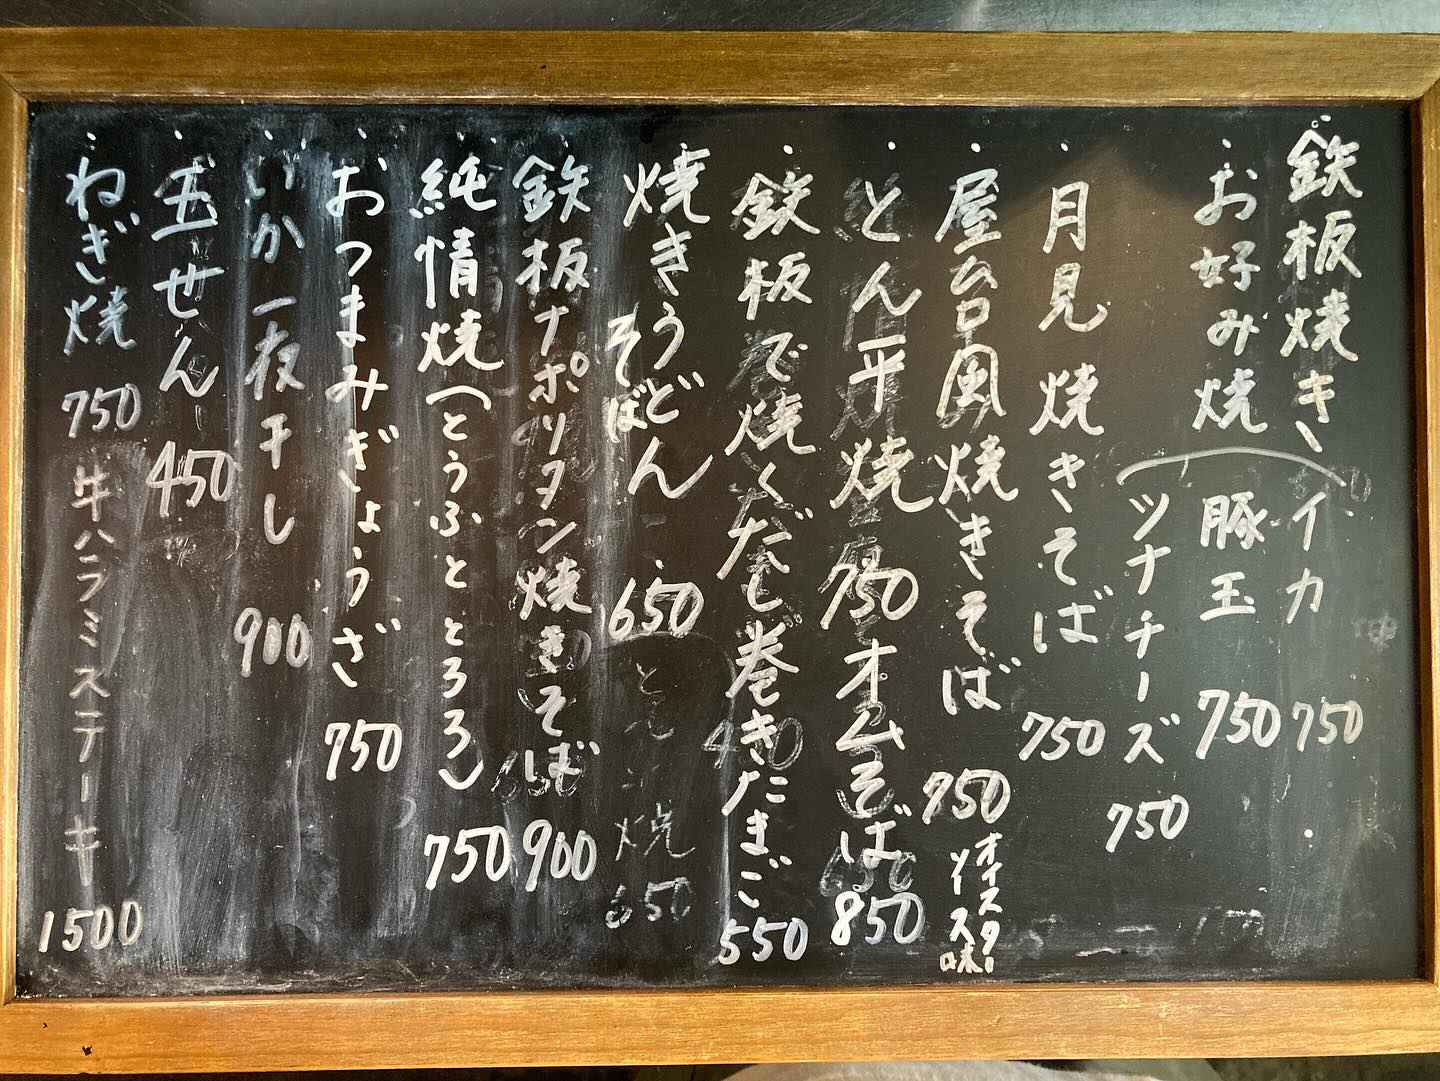 ・鉄板焼き
イカ 750
・お好み焼
豚玉 750
ツナチーズ 750
・月見焼きそば 750
・屋台風焼きそば 750
オイスター
ソース味
・とん平焼 750
オムそば 850
・鉄板で焼くだし巻きたまご 550
・焼きうどん 650
そば
・鉄板ナポリタン焼きそば 900
・純情焼(とうふととろろ) 750
・おつまみぎょうざ 750
・いか一夜干し 900
・玉せん 450
・ねぎ焼 750
牛ハラミステーキ 1500